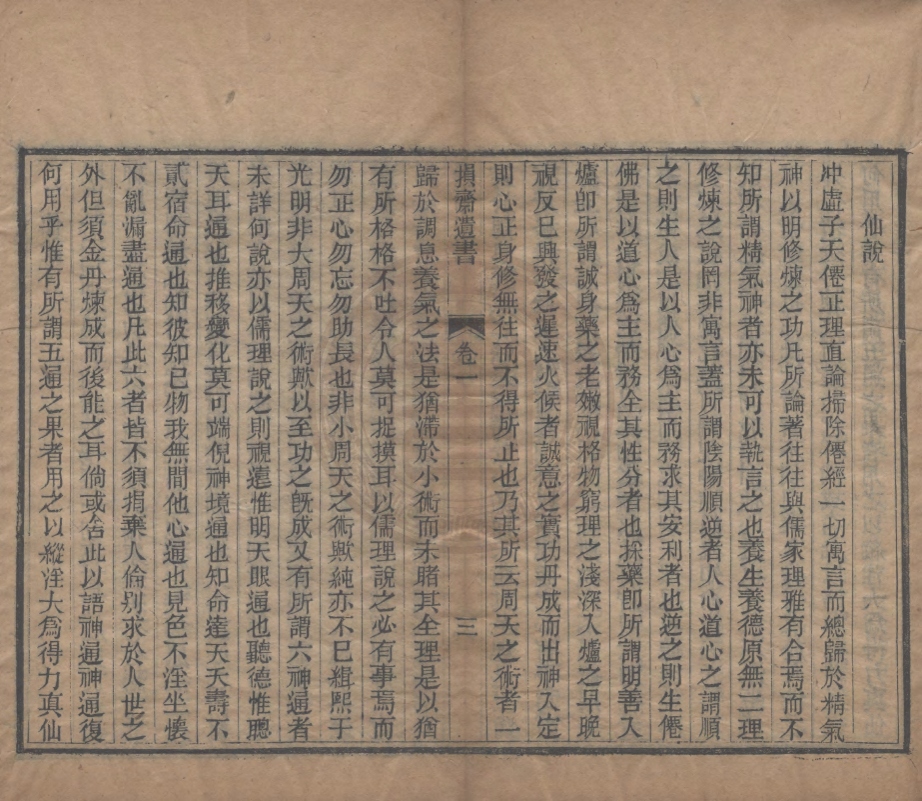 仙說
冲虛子天僊正理直論掃除僊經一切寓言而總歸於精氣
神以明修煉之功凡所論著往往與儒家理雅有合焉而不
知所謂精氣神者亦未可以執言之也養生養德原無二理
修煉之說罔非寓言蓋所謂陰陽順逆者人心道心之謂順
之則生人是以人心爲主而務求其安利者也逆之則生僊
佛是以道心爲主而務全其性分者也採藥卽所謂明善入
爐卽所謂誠身藥之老嫩視格物窮理之淺深入爐之早晚
視反已興發之遲速火候者誠意之實功丹成而出神入定
則心正身修無往而不得所止也乃其所云周天之術者一
損齋遺書
卷一
三
歸於調息養氣之法是猶滯於小術而未睹其全理是以猶
有所格格不吐令人莫可捉摸耳以儒理說之必有事焉而
勿正心勿忘勿助長也非小周天之術歟純亦不巳緝熙于
光明非大周天之術歟以至功之旣成又有所謂六神通者
未詳何說亦以儒理說之則視遠惟明天眼通也聽德惟聰
天耳通也推移變化莫可端倪神境通也知命達天夭壽不
貳宿命通也知彼知已物我無間他心通也見色不淫坐懷
不亂漏盡通也凡此六者皆不須捐棄人倫别求於人世之
外但須金丹煉成而後能之耳倘或舍此以語神通神通復
何用乎惟有所謂五通之果者用之以縱淫大爲得力真仙